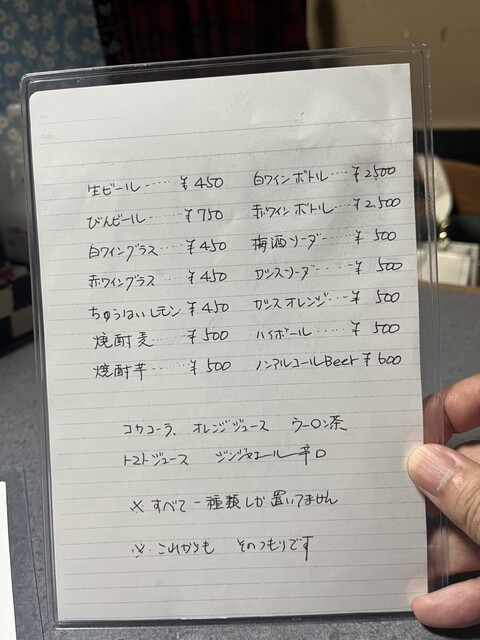 生ビール ‥‥ ¥450
びんビール ‥‥ ¥750
白ワイングラス ‥ ¥450
赤ワイングラス ‥ ¥450
ちゅうはいレモン ¥450
焼酎麦 ‥‥‥ ¥500
焼酎芋 ‥‥‥ ¥500
白ワインボトル ‥‥ ¥2500
赤ワインボトル ‥‥ ¥2,500
梅酒ソーダ ‥‥ ¥500
カシスソーダ ‥‥ ¥500
カシスオレンジ ‥‥ ¥500
ハイボール ‥‥‥ ¥500
ノンアルコールBeer ¥600
コカコーラ、オレンジジュース ウーロン茶
トマトジュース ジンジャエール辛口
※ すべて一種類しか置いてません
※ これからも そのつもりです